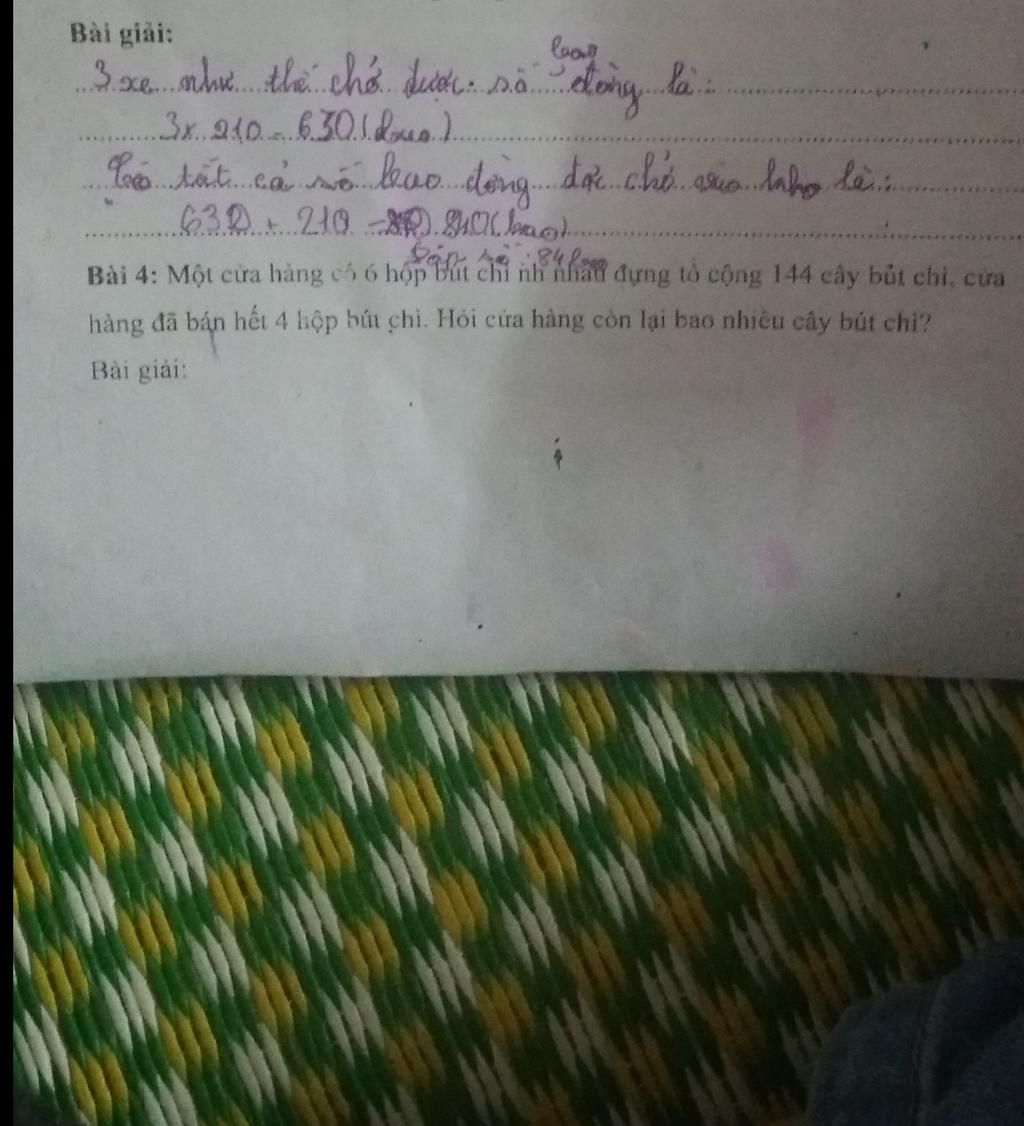 Bài giải:
3 xe như thế chở được số bao đòng là:
3 x 210 = 630 (bao)
Có tất cả số bao đòng đợc chở vào kho là:
630 + 210 = 840 (bao)
Đáp số: 84 bao
Bài 4: Một cửa hàng có 6 hộp bút chì nh nhau đựng tổ cộng 144 cây bút chì, cửa
hàng đã bán hết 4 hộp bút chì. Hỏi cửa hàng còn lại bao nhiêu cây bút chì?
Bài giải: